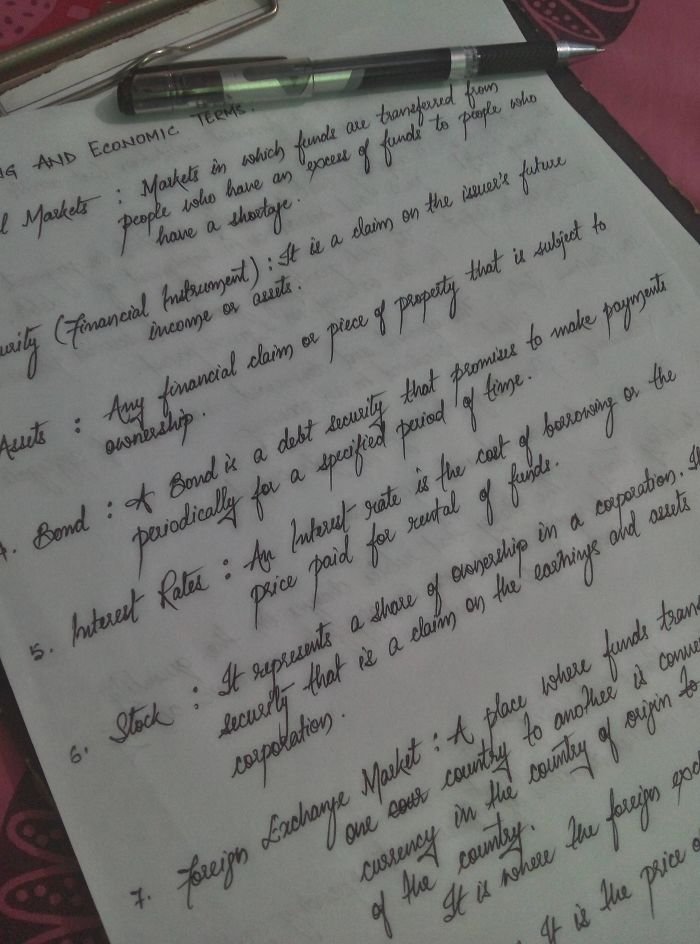 NG AND ECONOMIC TERMS.
l Markets : Markets in which funds are transferred from
people who have an excess of funds to people who
have a shortage.
urity (Financial Instrument) : It is a claim on the issuer's future
income or assets.
Assets : Any financial claim or piece of property that is subject to
ownership.
4. Bond : A Bond is a debt security that promises to make payments
periodically for a specified period of time.
5. Interest Rates : An Interest rate is the cost of borrowing or the
price paid for rental of funds.
6. Stock : It represents a share of ownership in a corporation. It
security that is a claim on the earnings and assets
corporation.
7. Foreign Exchange Market : A place where funds trans
one cour country to another is conve
currency in the country of origin to
of the country.
It is where the foreign exc
It is the price o